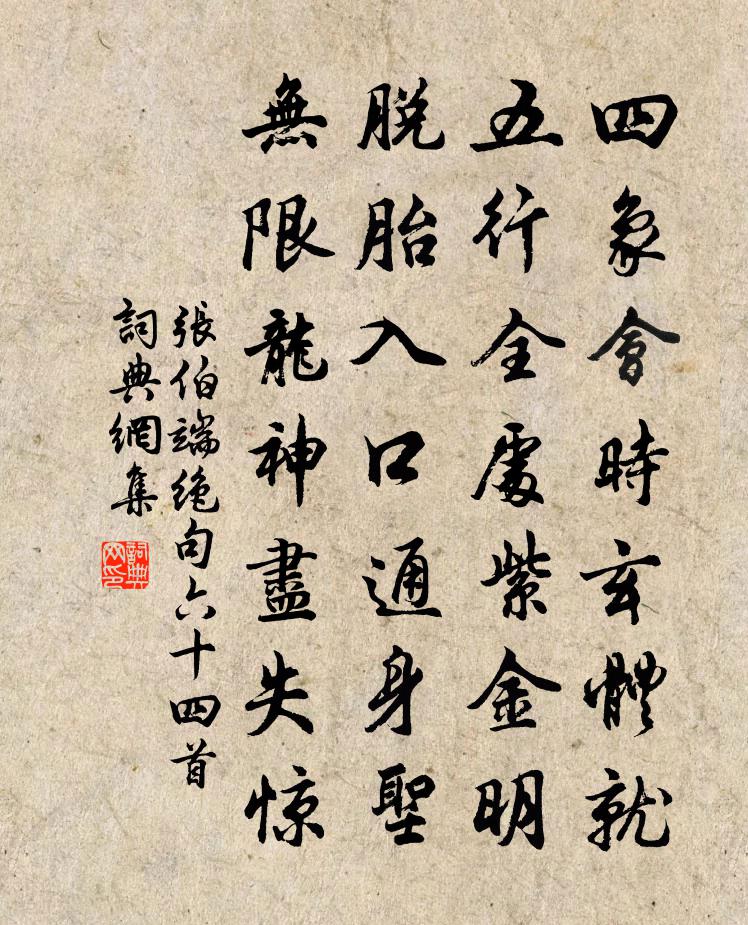 四象會時玄體就
五行全處紫金明
脫胎入口通身聖
無限龍神盡失惊
張伯端絶句六十四首
詞典網集
詞典
网印